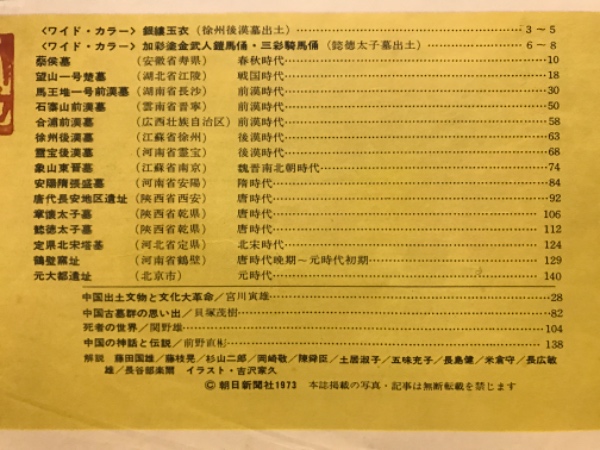 〈ワイド・カラー〉銀縷玉衣（徐州後漢墓出土）……3～5
〈ワイド・カラー〉加彩塗金武人鎧馬俑・三彩騎馬俑（懿徳太子墓出土）……6～8
蔡侯墓（安徽省寿県）春秋時代……10
望山一号楚墓（湖北省江陵）戦国時代……18
馬王堆一号前漢墓（湖南省長沙）前漢時代……30
石寨山前漢墓（雲南省晋寧）前漢時代……50
合浦前漢墓（広西壮族自治区）前漢時代……58
徐州後漢墓（江蘇省徐州）後漢時代……63
霊宝後漢墓（河南省霊宝）後漢時代……68
象山東晋墓（江蘇省南京）魏晋南北朝時代……74
安陽隋張盛墓（河南省安陽）隋時代……84
唐代長安地区遺址（陝西省西安）唐時代……92
章懐太子墓（陝西省乾県）唐時代……106
懿徳太子墓（陝西省乾県）唐時代……112
定県北宋塔基（河北省定県）北宋時代……124
鶴壁窯址（河南省鶴壁）唐時代晩期～元時代初期……129
元大都遺址（北京市）元時代……140
中国出土文物と文化大革命／宮川寅雄……28
中国古墓群の思い出／貝塚茂樹……82
死者の世界／関野雄……104
中国の神話と伝説／前野直彬……138
解説　藤田国雄／藤枝晃／杉山二郎／岡崎敬／陳舜臣／土居淑子／五味充子／長島健／米倉守／長広敏
雄／長谷部楽爾　イラスト・吉沢家久
©朝日新聞社1973　本誌掲載の写真・記事は無断転載を禁じます